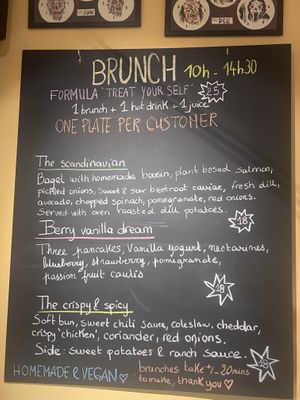 BRUNCH 10h - 14h30
FORMULA 'TREAT YOUR SELF' 25
1 brunch + 1 hot drink + 1 juice
ONE PLATE PER CUSTOMER
The scandinavian
Bagel with homemade boursin, plant based salmon,
pickled onions, sweet & sour beetroot caviar, fresh dill,
avocado, chopped spinach, pomegranate, red onions.
Served with oven roasted dill potatoes.
18
Berry vanilla dream
Three pancakes, Vanilla yogurt, nectarines,
blueberry, strawberry, pomegranate,
passion fruit
18
The crispy & spicy
Soft bun, sweet chili sauce, coleslaw, cheddar,
crispy 'chicken', coriander, red onions.
Side: sweet potatoes & ranch sauce.
18
HOMEMADE & VEGAN
brunches take +/- 20mins
to make, thank you